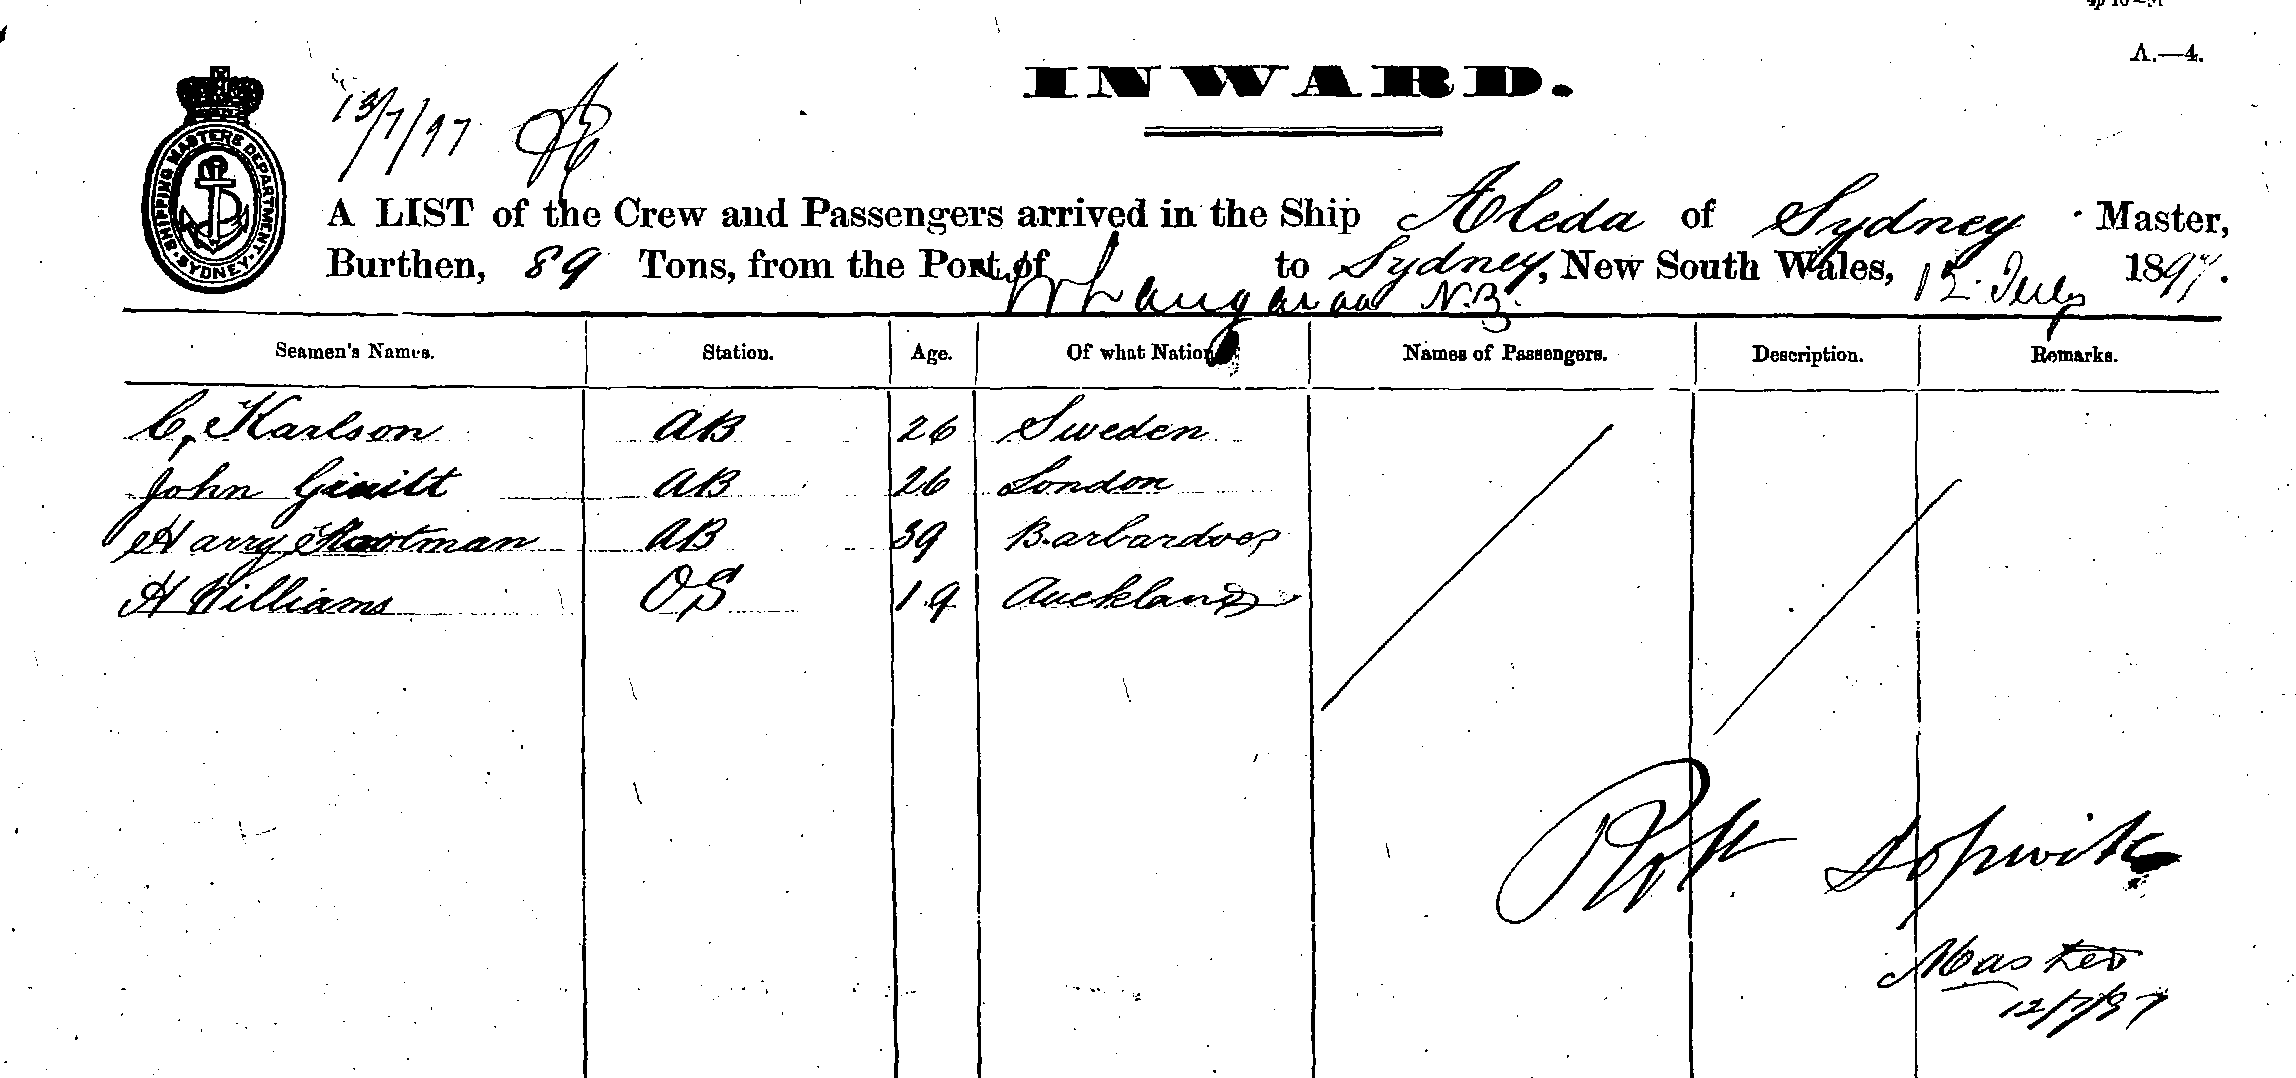 A.—4.
INWARD.
13/7/97
SHIPPING MASTERS DEPARTMENT SYDNEY
A LIST of the Crew and Passengers arrived in the Ship Aleda of Sydney Master,
Burthen, 89 Tons, from the Port of Whangaroa N.Z. to Sydney, New South Wales, 12 July 1897.
Seamen's Names. Station. Age. Of what Nation Names of Passengers. Description. Remarks.
C, Karlson AB 26 Sweden
John AB 26 London
Harry AB 39 Barbardoes
H Williams OS 19 Auckland
Robt Sopwith
Master
12/7/97